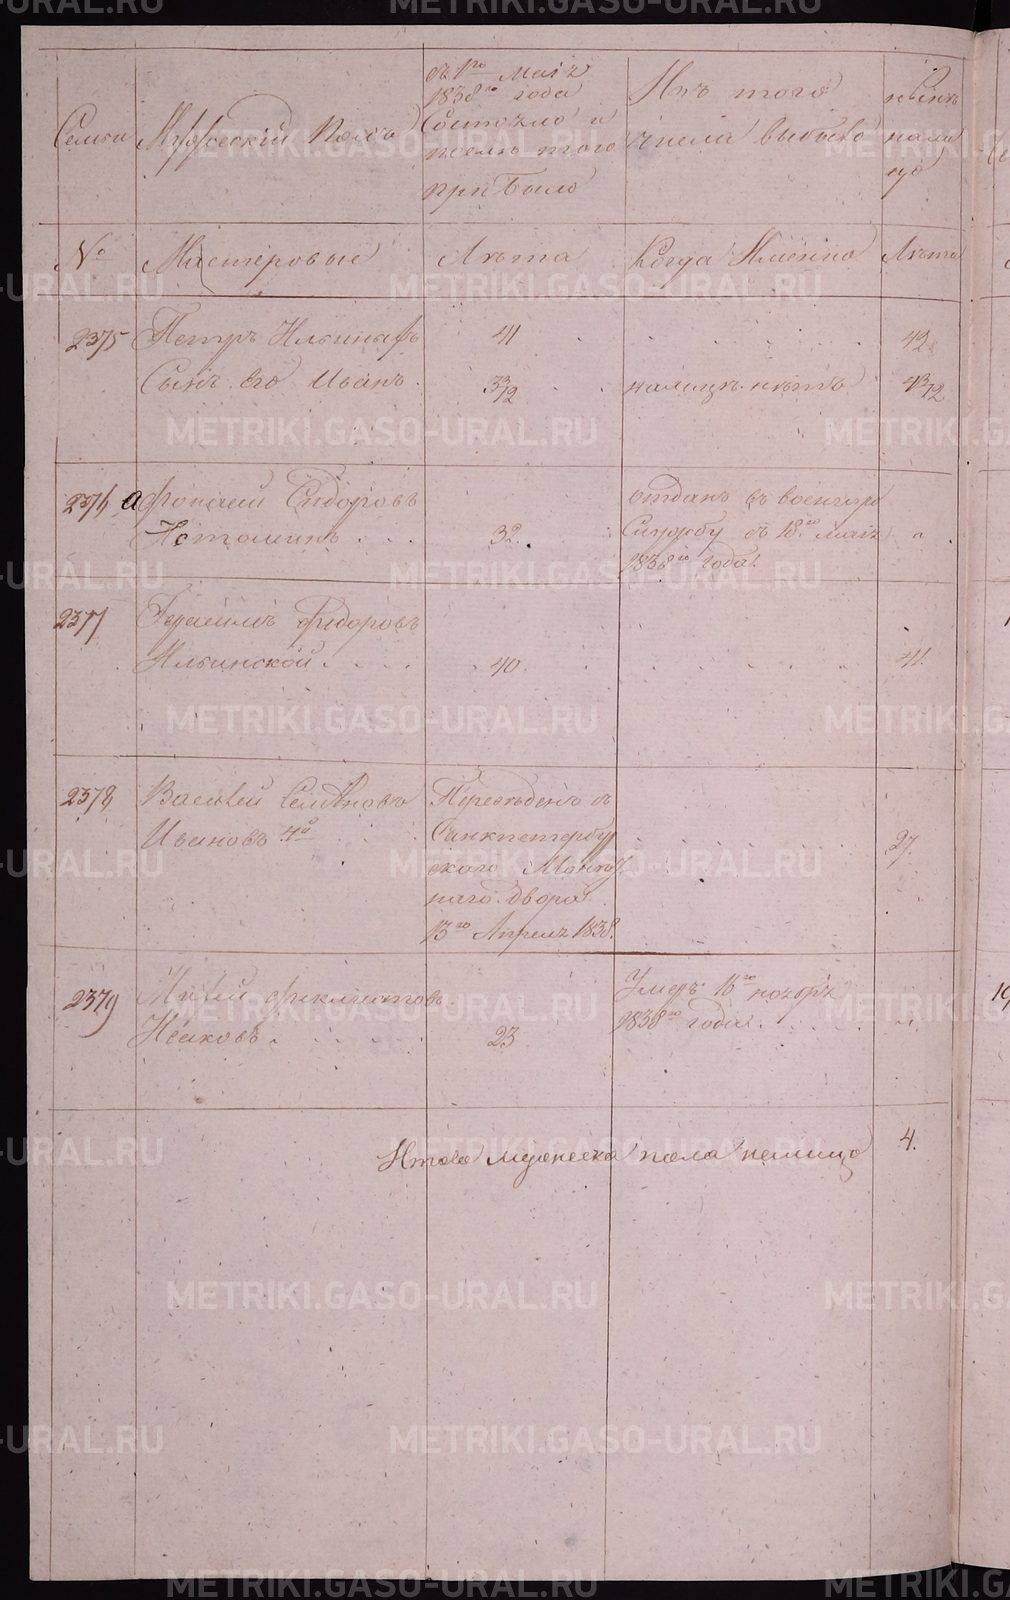 METRIKI.GASO-URAL.RU
Семьи
Мужеский Полъ
съ 1го Маія
1838го года
Состояло и
послѣ того
прибыло
Изъ того
числа выбыло
нынѣ
нали
цо
№
Мастеровые
Лѣта
Когда Именно
Лѣта
2375
Петръ Ильиныхъ
41
42
Сынъ Его Иванъ
налицѣ нѣтъ
2376
Афонасей Сидоровъ
Истоминъ
32.
отданъ въ военную
Службу съ 18го маія
1838го года.
2377
Герасимъ Фидоровъ
Ильинской
40
41.
2378
Василей Семеновъ
Ивановъ 4й
Переведенъ съ
Санкпетербур
ского Монет
наго двора
13го Апреля 1838.
27.
2379
Исаковъ
23
Умеръ 16го ноября
1838го года
Итого мужеска пола налицо
4.